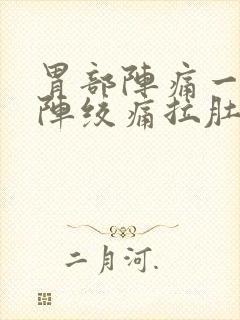 胃部陣痛一
陣绞痛拉肚
二月河.